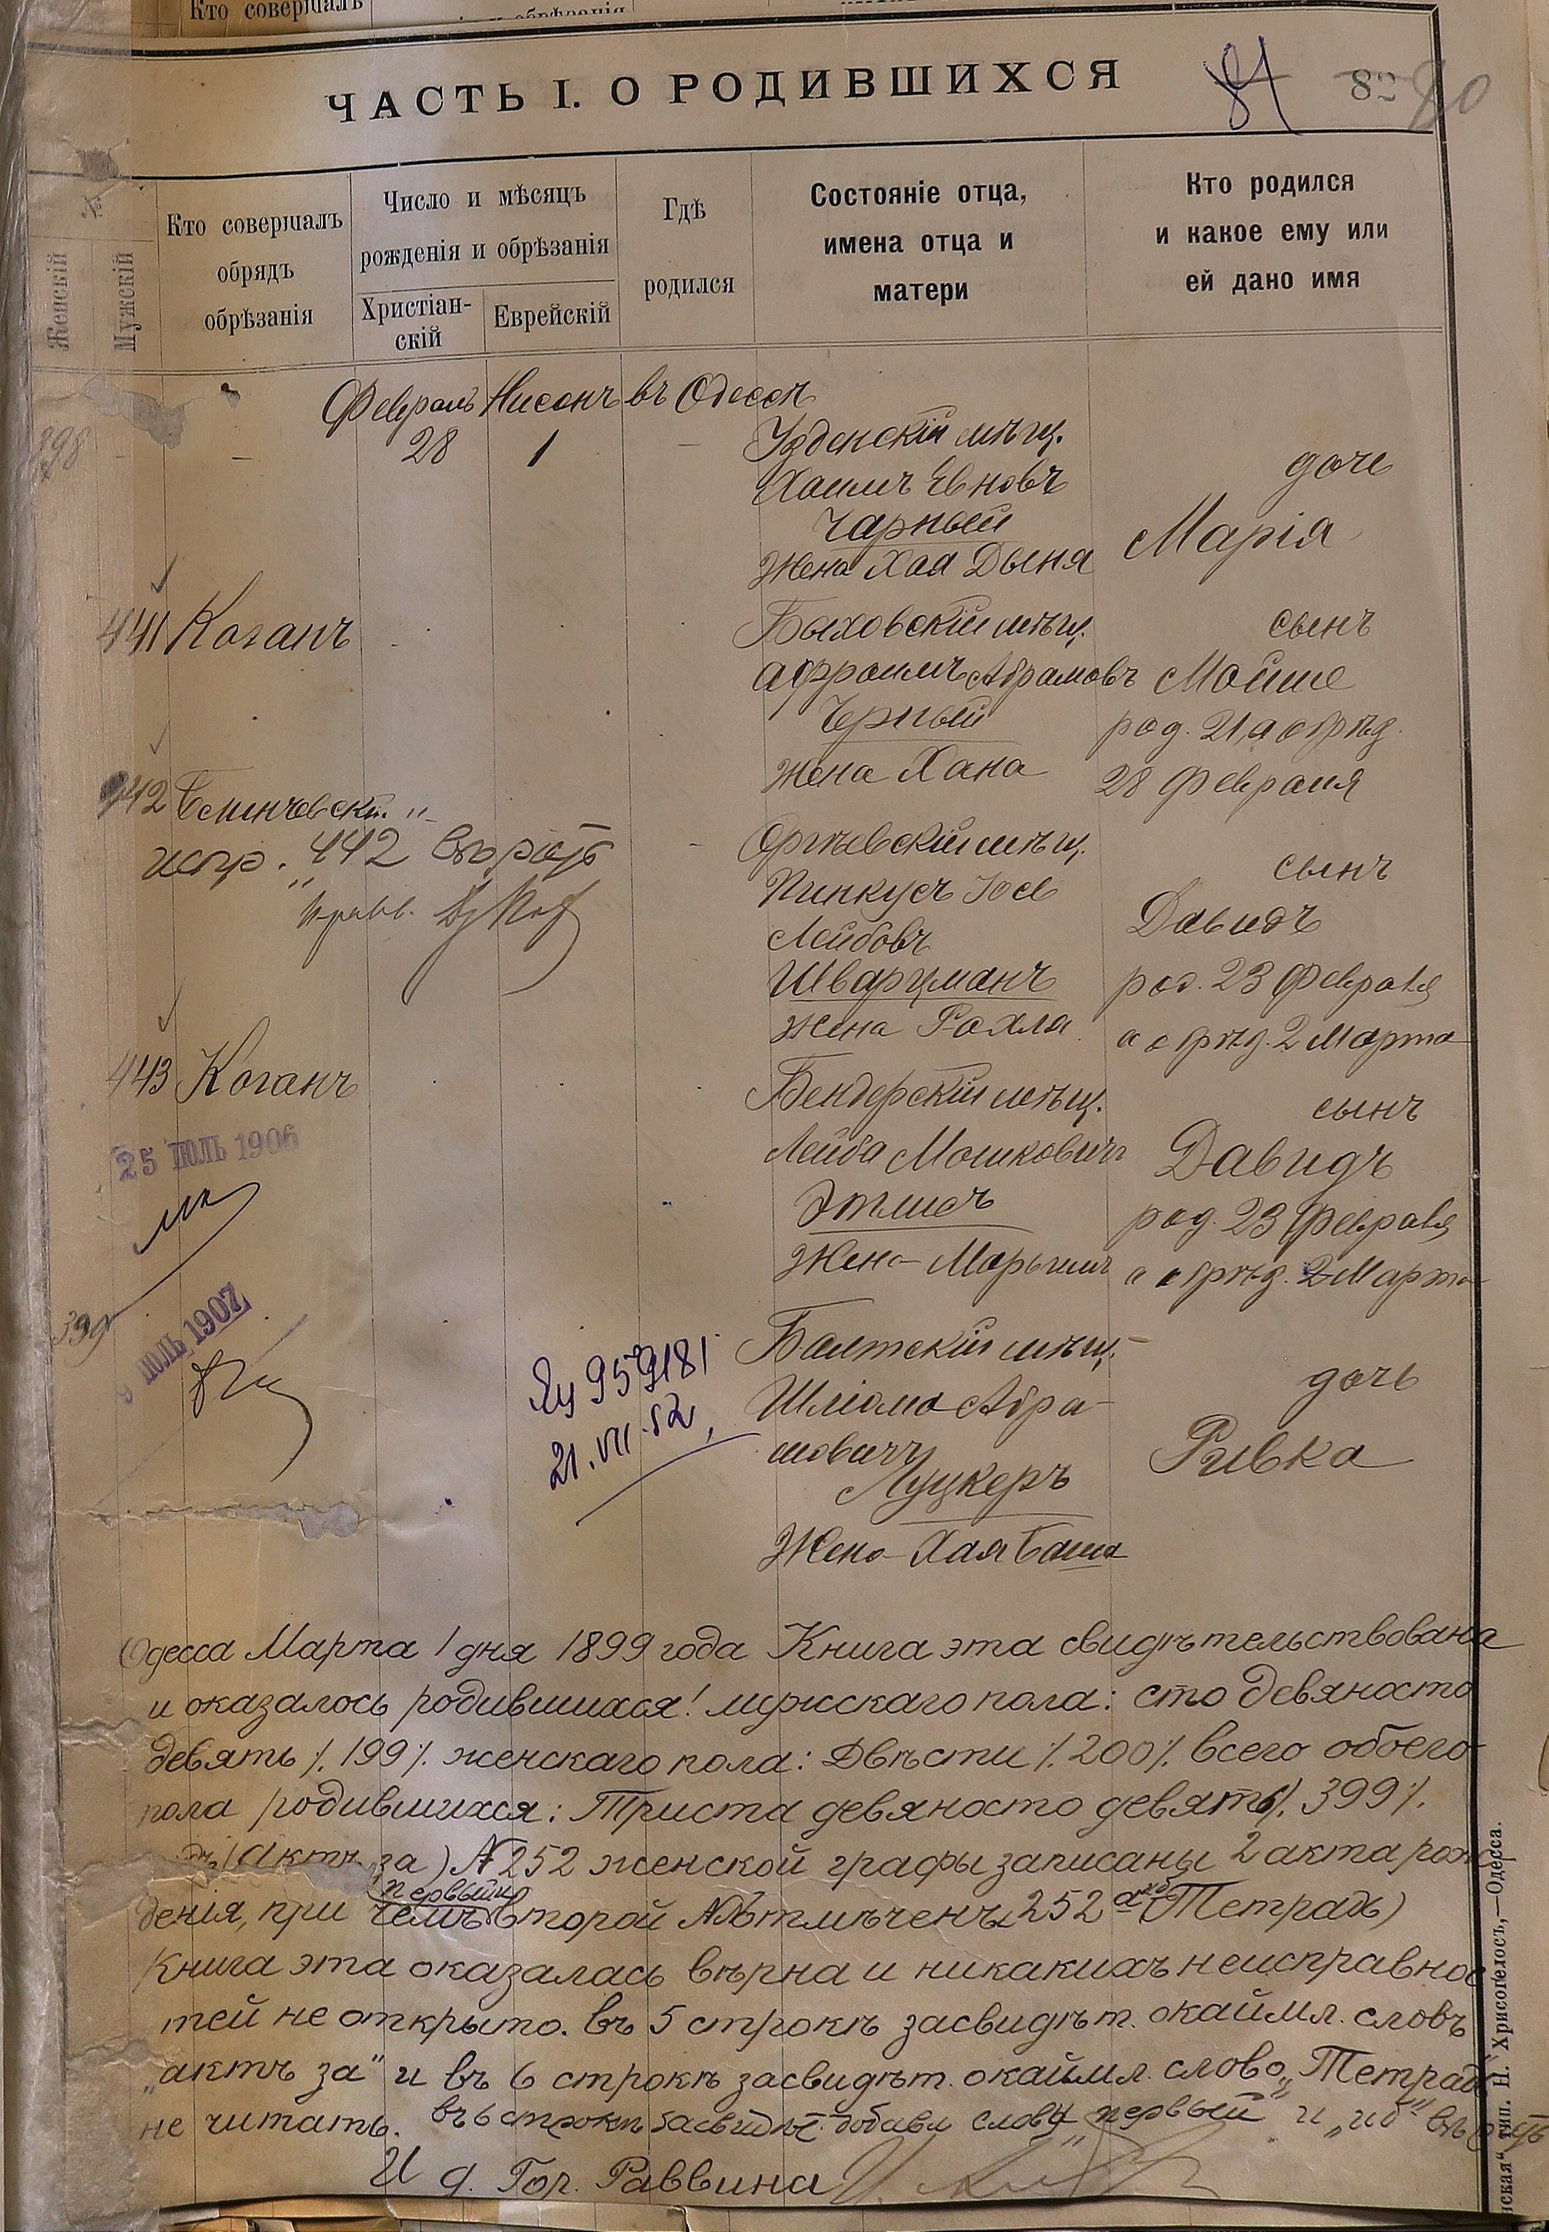 Кто совершалъ
ЧАСТЬ I. О РОДИВШИХСЯ
84 82 80
№
Женскій
Мужскій
Кто совершалъ
обрядъ
обрѣзанія
Число и мѣсяцъ
рожденія и обрѣзанія
Христіан-
скій
Еврейскій
Гдѣ
родился
Состояніе отца,
имена отца и
матери
Кто родился
и какое ему или
ей дано имя
Февраль Нисонъ въ Одессѣ
398 28 1
Узденскій мѣщ.
Хаимъ Евновъ
Чарный
Жена Хая Дыня
дочь
Марія
441 Коганъ
Быховскій мѣщ.
Афроимъ Абрамовъ
Черный
Жена Хана
сынъ
Мойше
род. 21, а обрѣз.
28 Февраля
442
испр. "442" вѣрить
Оргѣевскій мѣщ.
Пинкусъ Іосе
Лейбовъ
Шварцманъ
Жена Рохля
сынъ
Давидъ
род. 23 Февраля
а обрѣз. 2 Марта
443 Коганъ
Бендерскій мѣщ.
Лейба Мошковичъ
Этлисъ
Жена Марьямъ
сынъ
Давидъ
род. 23 Февраля
а обрѣз. 2 Марта
25 ІЮЛЬ 1906
399
9 ІЮЛЬ 1907
959181
21.VII.52
Балтскій мѣщ.
Шліома Абра-
мовичъ
Луцкеръ
Жена Хая Бася
дочь
Ривка
Одесса Марта 1 дня 1899 года Книга эта свидѣтельствована
и оказалось родившихся: мужскаго пола: сто девяносто
девять /. 199 /. женскаго пола: Двѣсти /. 200 /. всего обоего
пола родившихся: Триста девяносто девять /. 399 /.
(актъ за) № 252 женской графы записаны 2 акта рож
денія, при чемъ первый и второй № отмѣченъ 252 (Тетрадь)
Книга эта оказалась вѣрна и никакихъ неисправнос
тей не открыто. въ 5 строкѣ засвидѣт. окаймл. словъ
„актъ за" и въ 6 строкѣ засвидѣт. окаймл. слово „Тетрадь"
не читать. въ 6 строкѣ засвидѣт. добавл слову „первый" и
И д. Гор. Раввина
тип. Н. Хрисогелосъ,—Одесса.